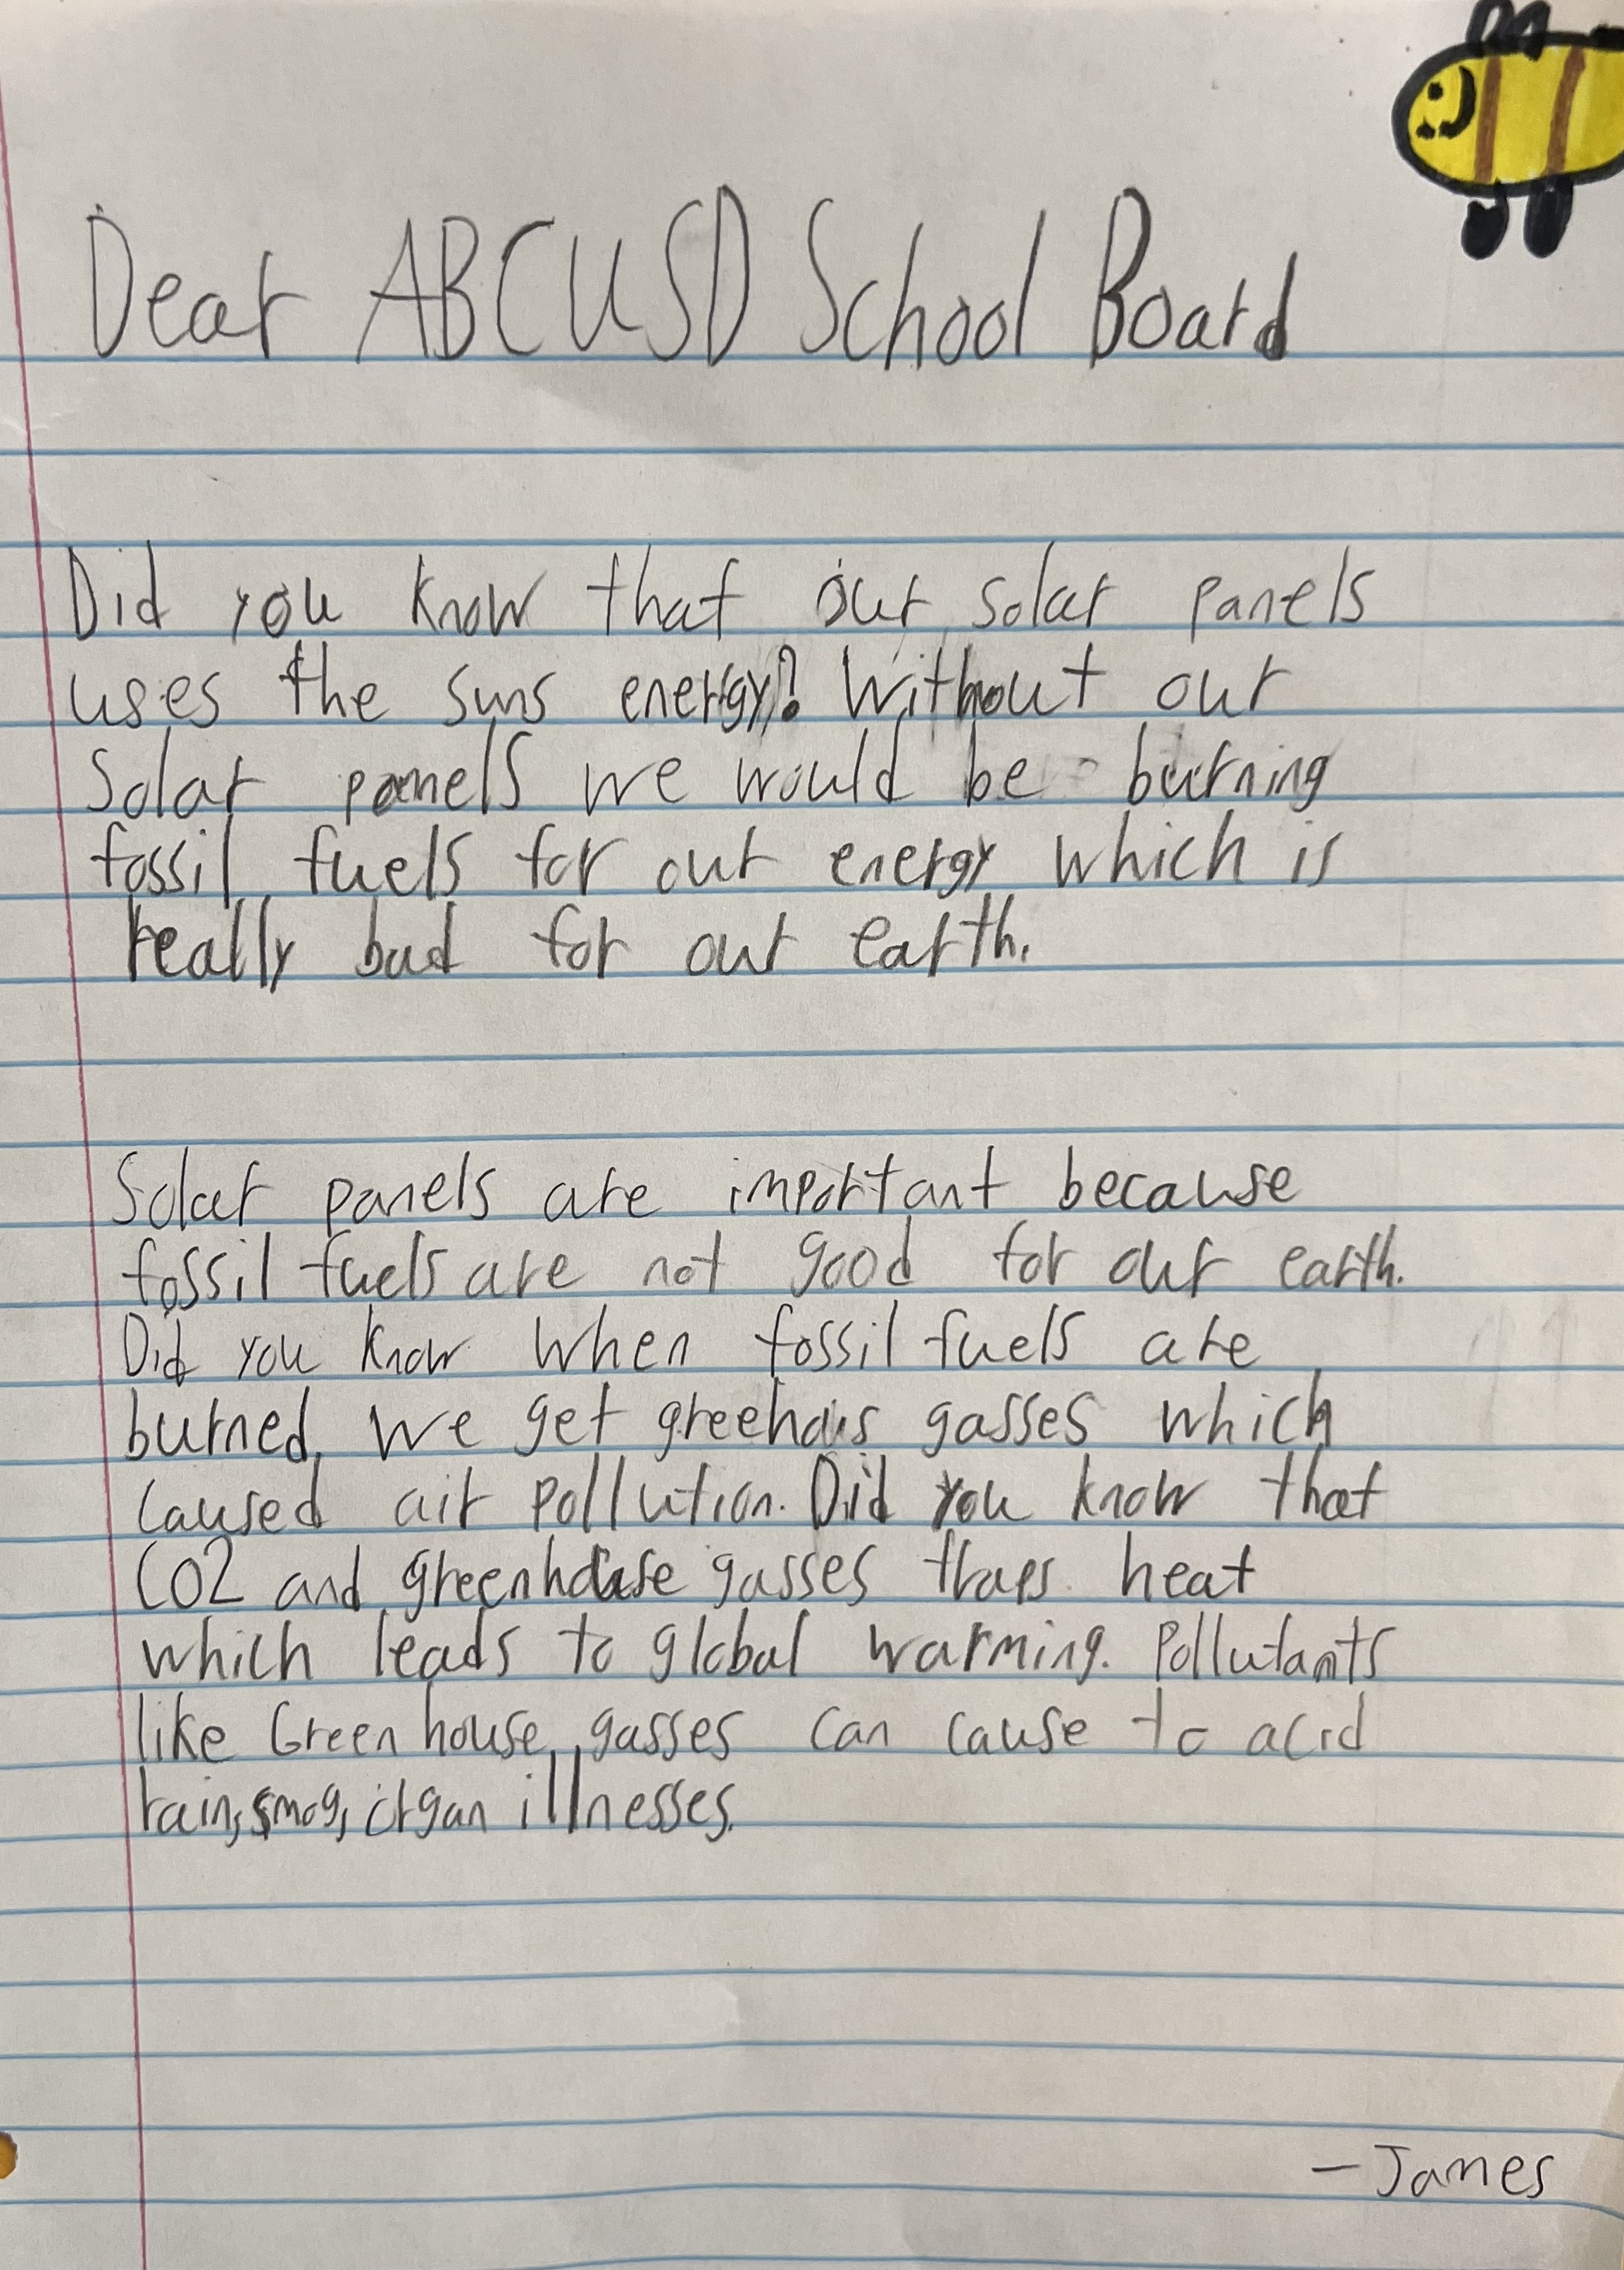 Dear ABCUSD School Board
Did you know that our solar panels
uses the suns energy? Without our
Solar panels we would be burning
fossil fuels for our energy which is
really bad for our earth.
Solar panels are important because
fossil fuels are not good for our earth.
Did you know when fossil fuels are
burned, we get greenhous gasses which
caused air pollution. Did you know that
CO2 and greenhouse gasses traps heat
which leads to global warming. Pollutants
like Greenhouse gasses can cause to acid
rain, smog, organ illnesses.
- James